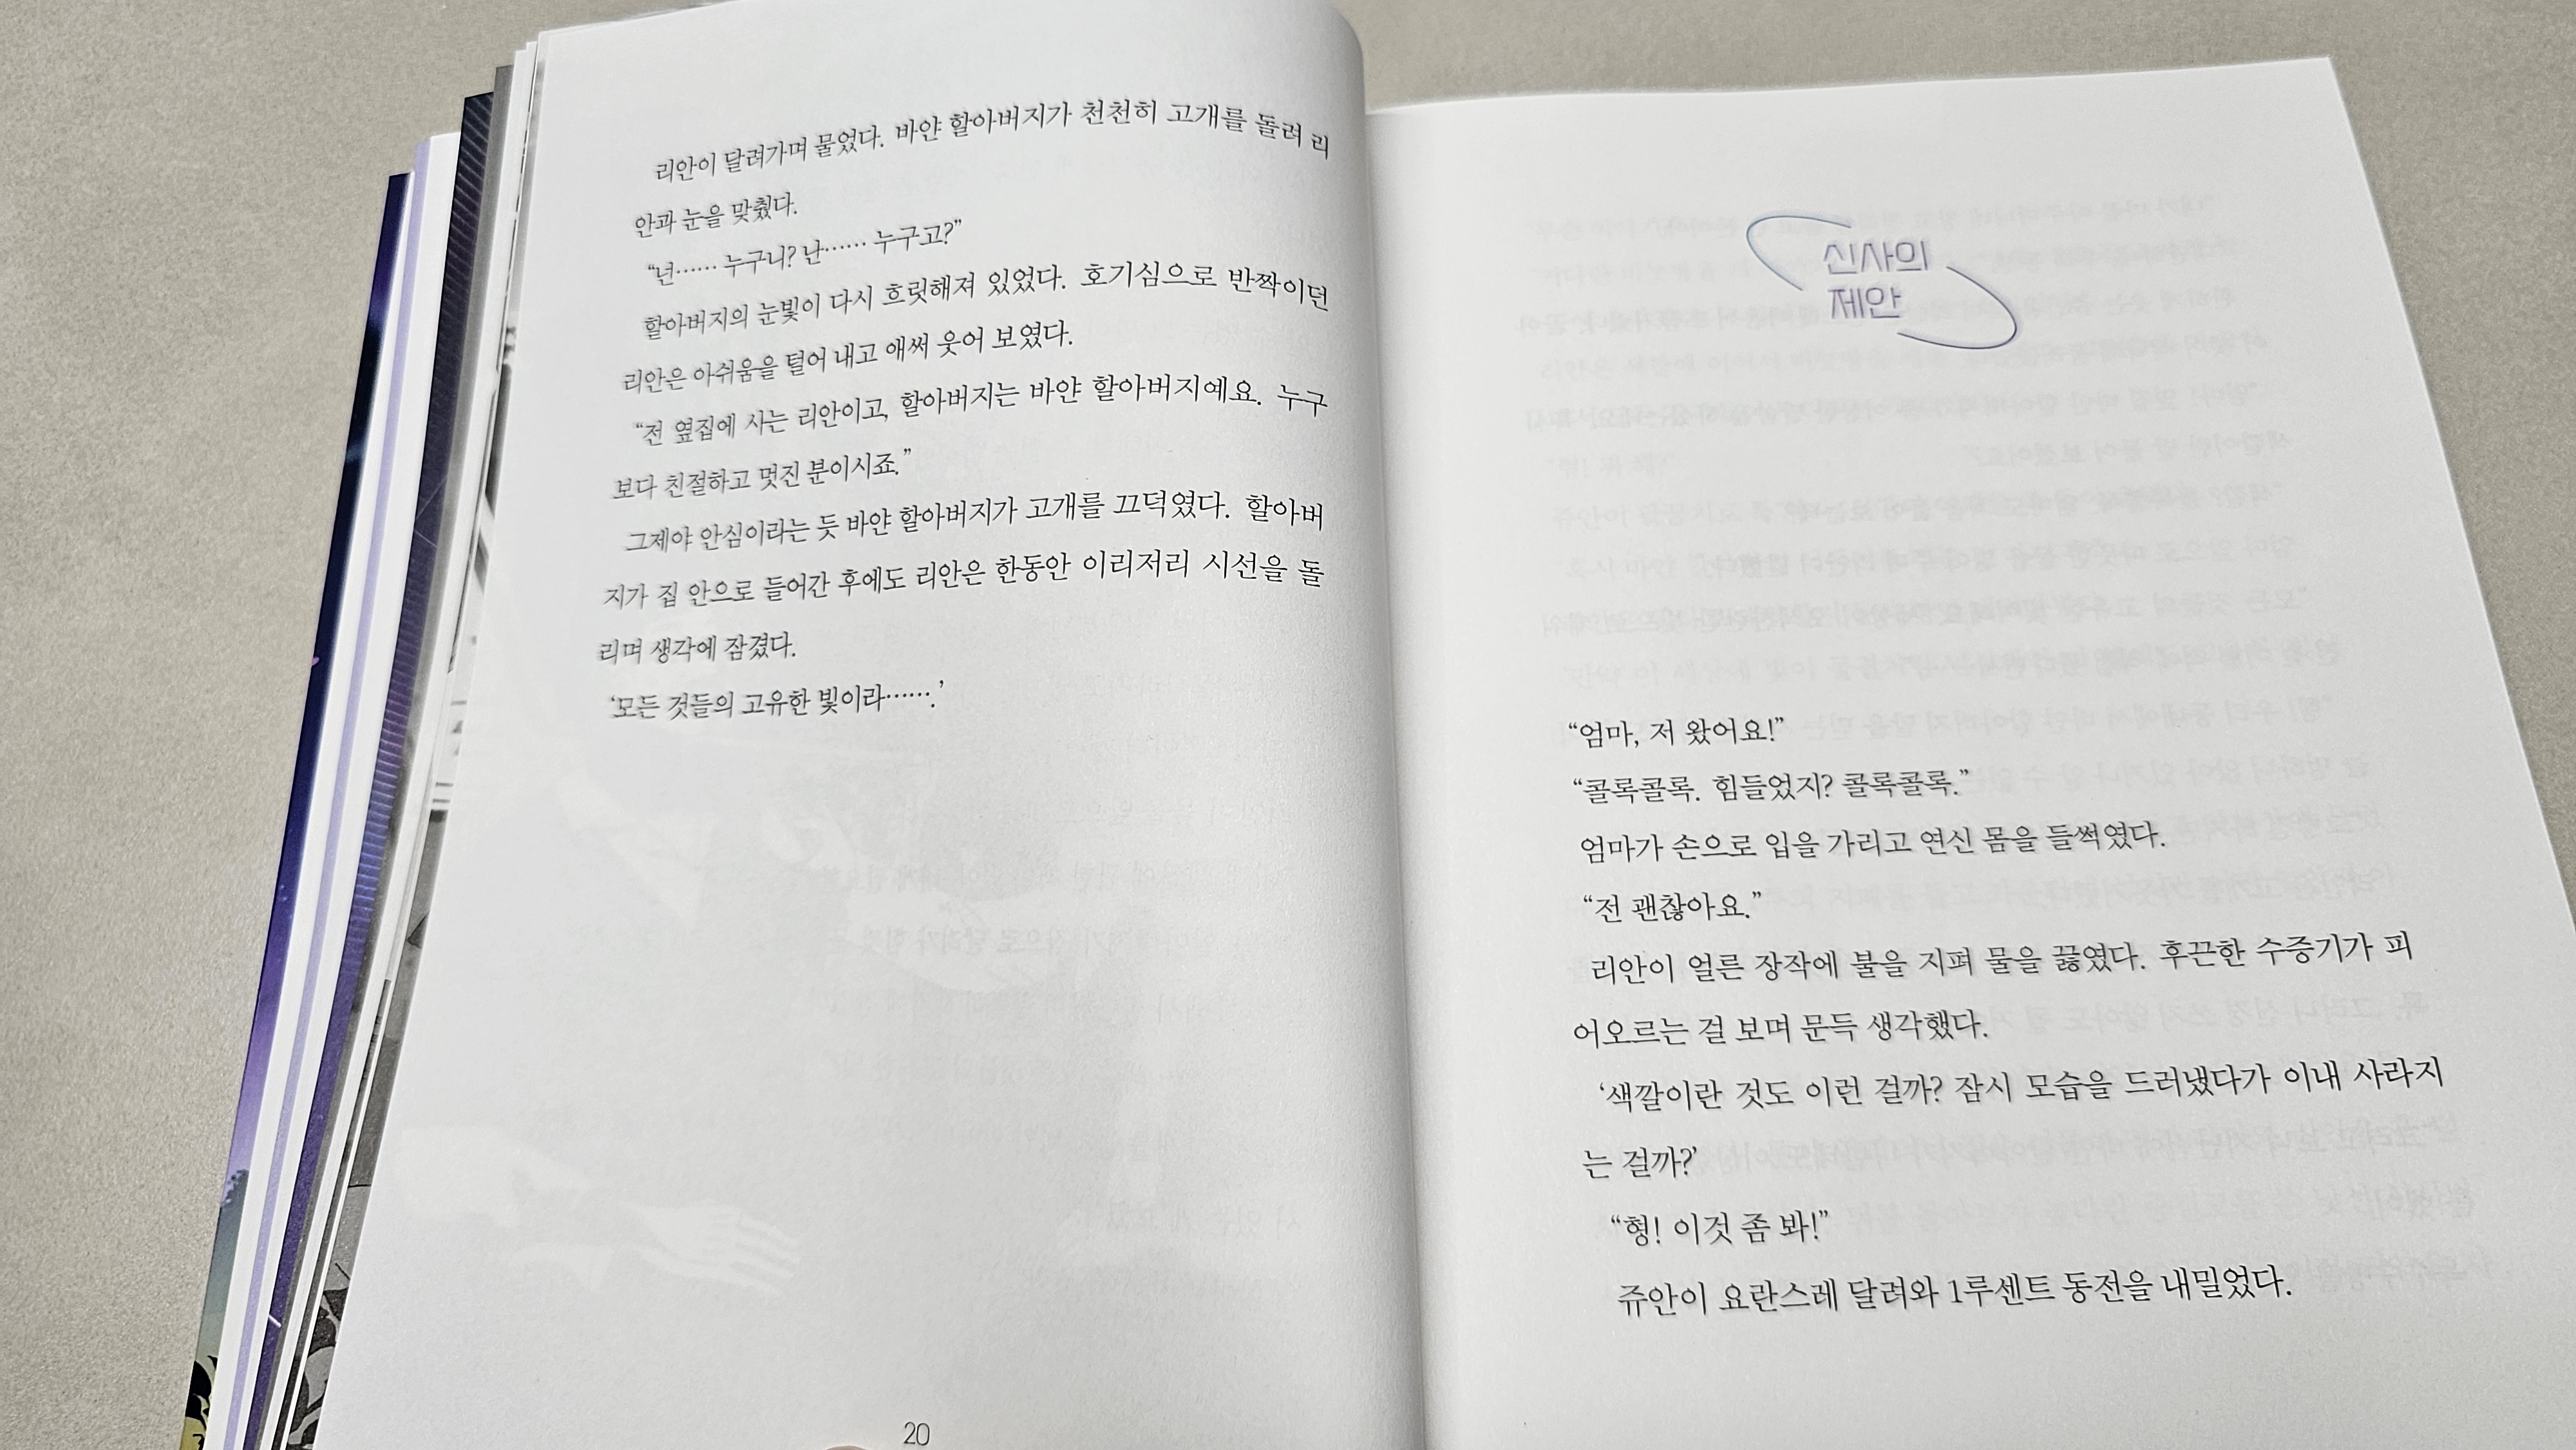 리안이 달려가며 물었다. 바얀 할아버지가 천천히 고개를 돌려 리
안과 눈을 맞췄다.
“넌…… 누구니? 난…… 누구고?”
할아버지의 눈빛이 다시 흐릿해져 있었다. 호기심으로 반짝이던
리안은 아쉬움을 털어 내고 애써 웃어 보였다.
“전 옆집에 사는 리안이고, 할아버지는 바얀 할아버지예요. 누구
보다 친절하고 멋진 분이시죠.”
그제야 안심이라는 듯 바얀 할아버지가 고개를 끄덕였다. 할아버
지가 집 안으로 들어간 후에도 리안은 한동안 이리저리 시선을 돌
리며 생각에 잠겼다.
‘모든 것들의 고유한 빛이라…….’
20
신사의
제안
“엄마, 저 왔어요!”
“콜록콜록. 힘들었지? 콜록콜록.”
엄마가 손으로 입을 가리고 연신 몸을 들썩였다.
“전 괜찮아요.”
리안이 얼른 장작에 불을 지펴 물을 끓였다. 후끈한 수증기가 피
어오르는 걸 보며 문득 생각했다.
‘색깔이란 것도 이런 걸까? 잠시 모습을 드러냈다가 이내 사라지
는 걸까?’
“형! 이것 좀 봐!”
쥬안이 요란스레 달려와 1루센트 동전을 내밀었다.